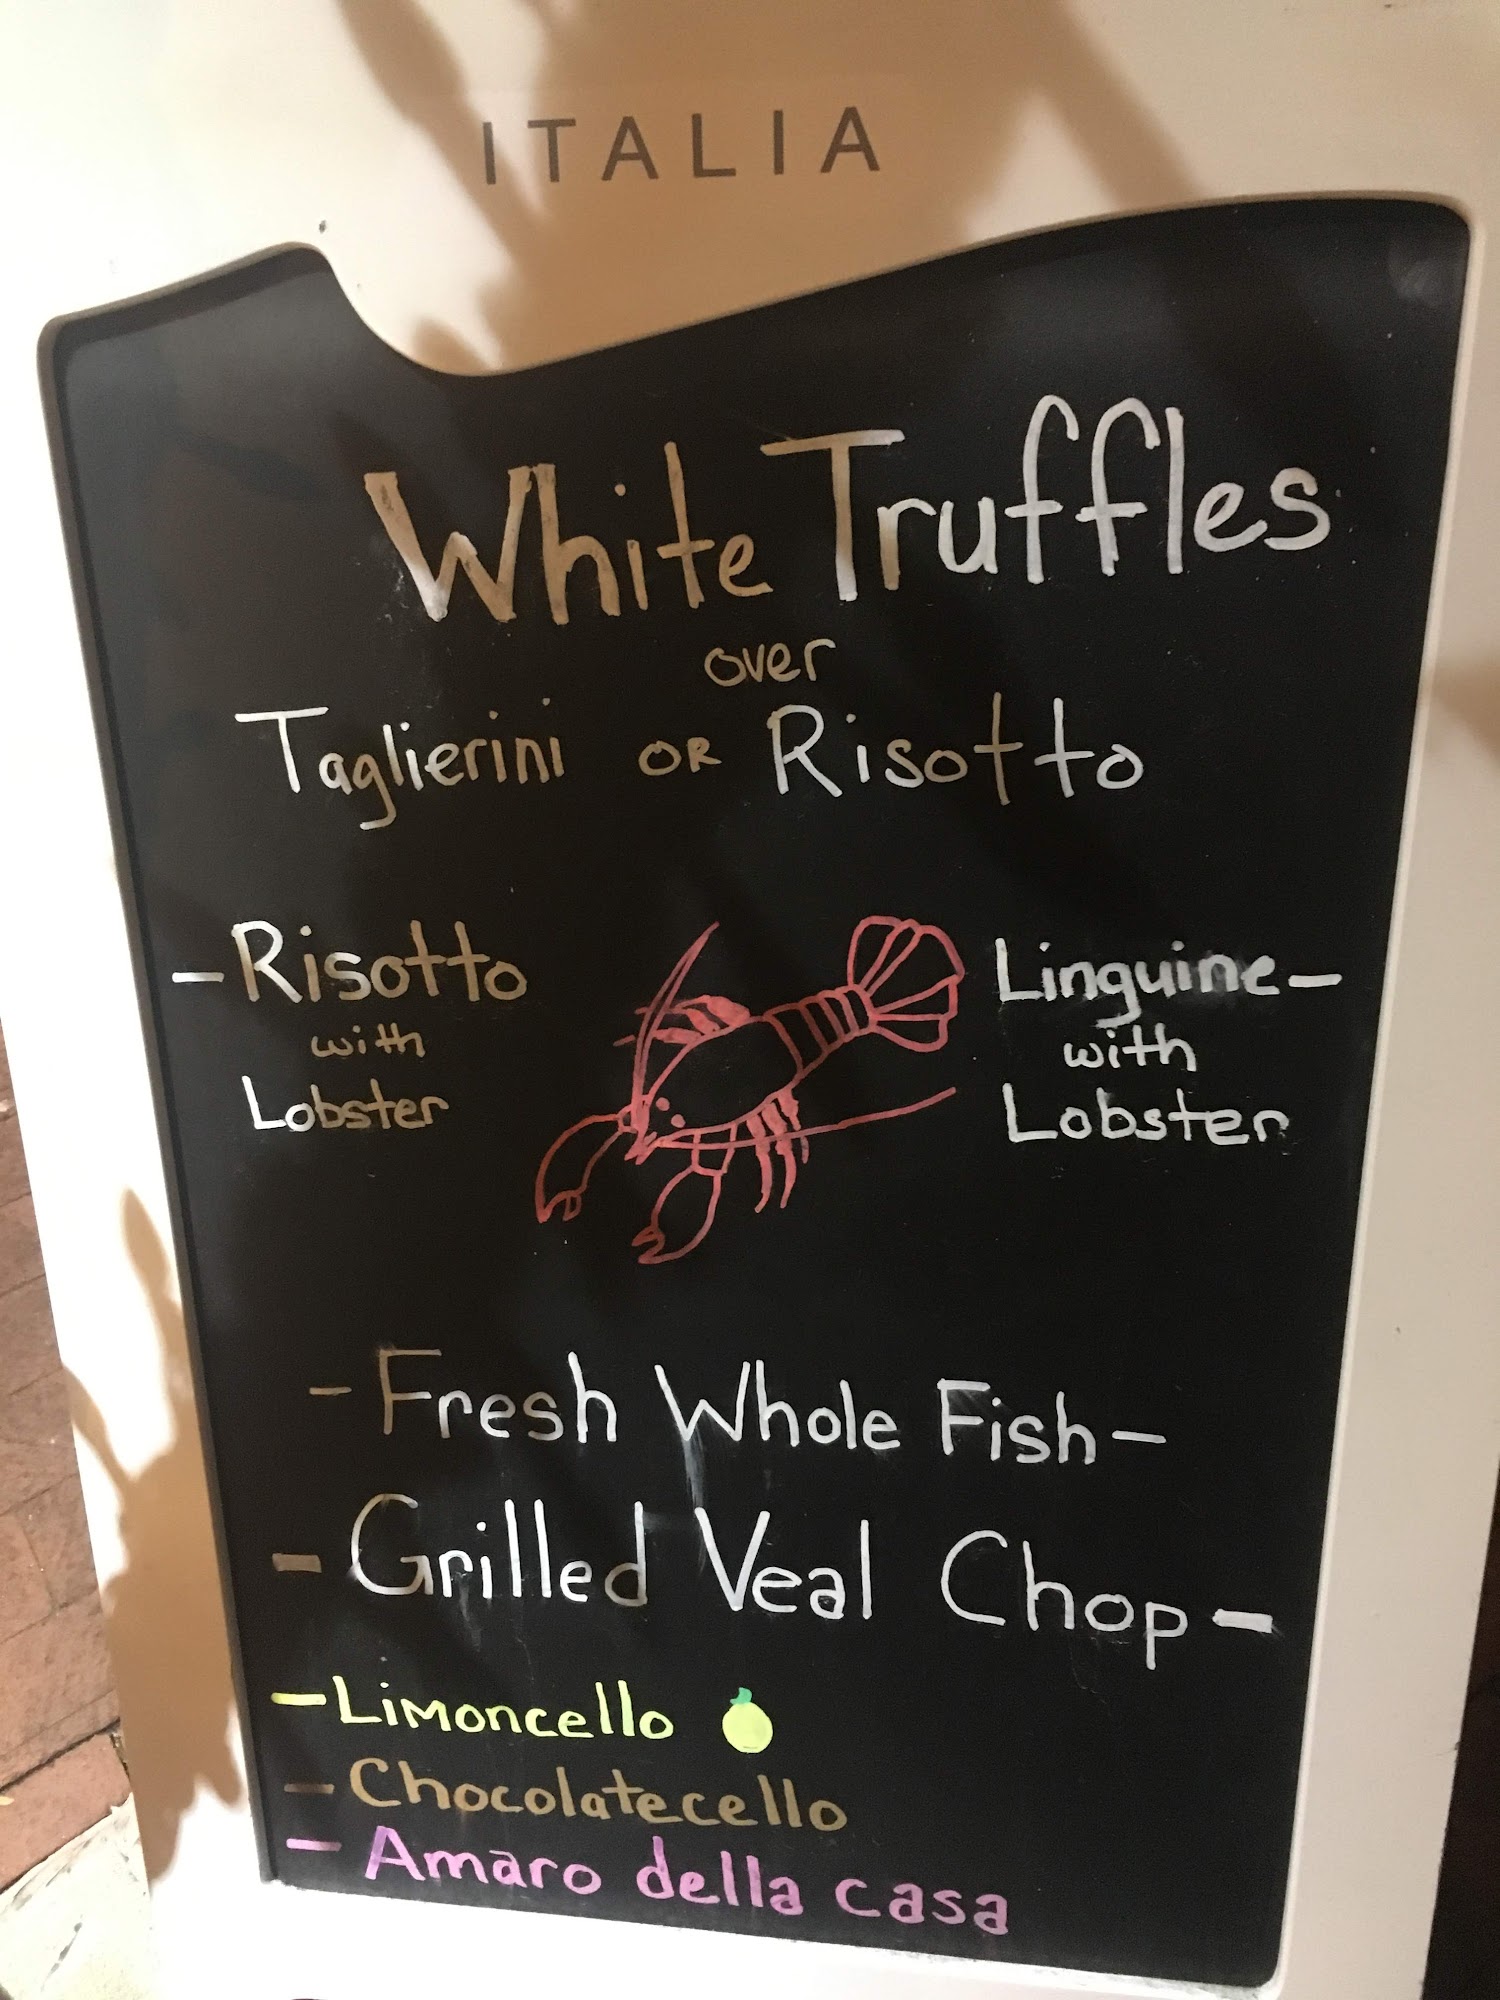 ITALIA
White Truffles
over
Taglierini OR Risotto
- Risotto
with
Lobster
Linguine -
with
Lobster
- Fresh Whole Fish -
- Grilled Veal Chop -
- Limoncello
- Chocolatecello
- Amaro della casa